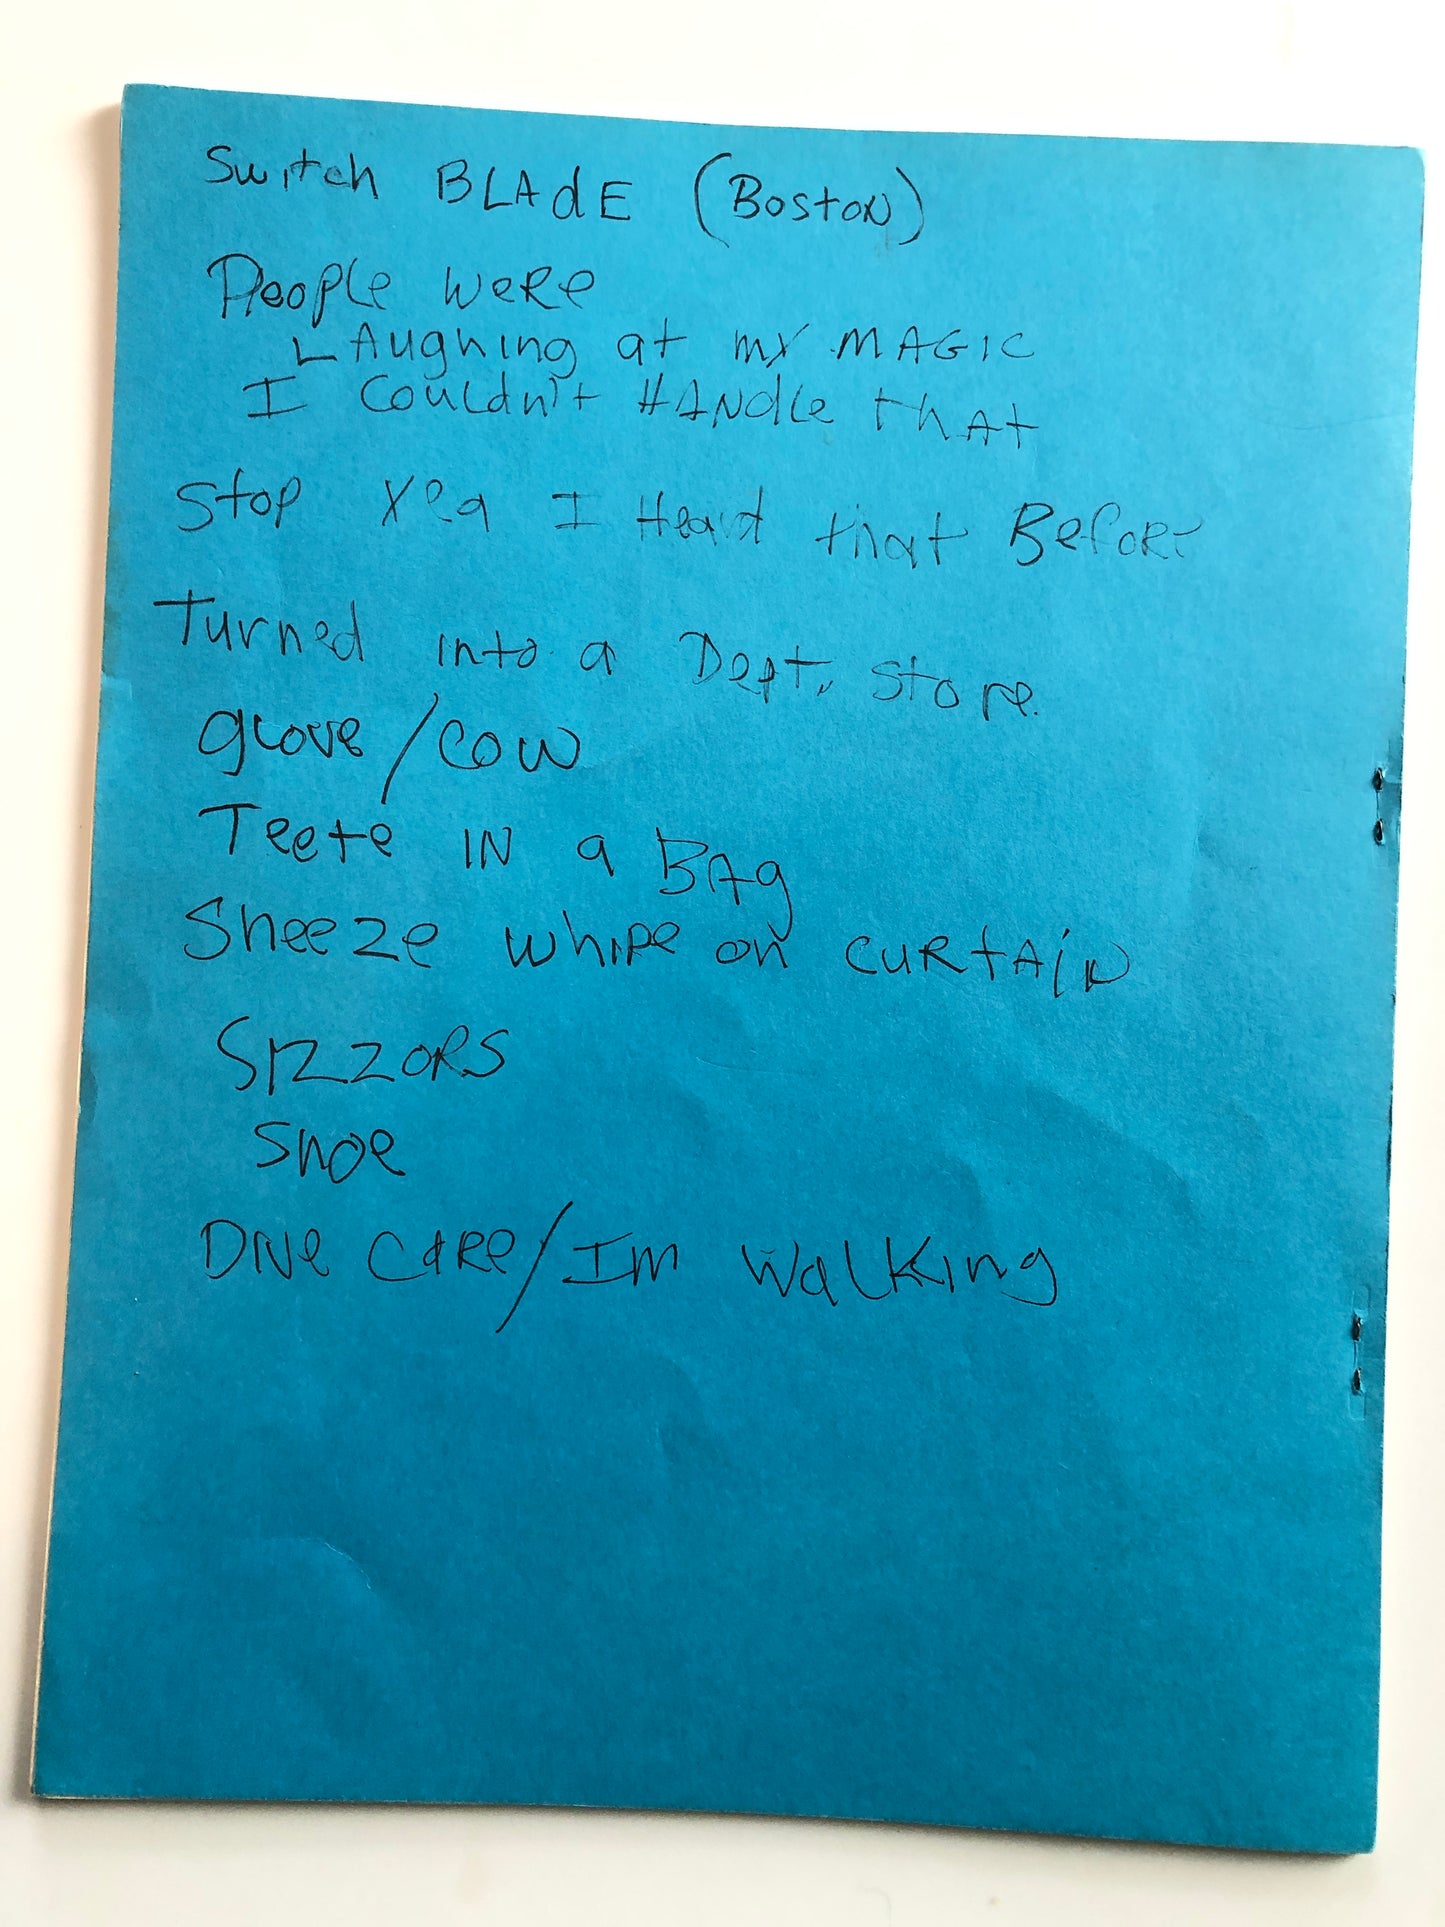 Switch BLAdE (Boston)
People were
LAughing at my MAGIC
I Couldn't HANdLe tHAt
Stop Yea I Heard that BeFore
Turned into a Dept. Store
glove/cow
Teete IN a BAg
Sneeze whipe on CURtAiN
SIZZORS
Shoe
DNe CaRe/Im WaLKing